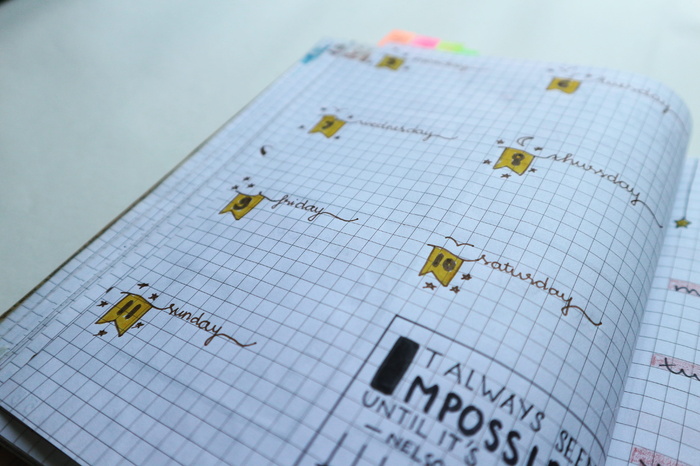 7 wednesday
8 thursday
9 friday
10 saturday
11 sunday
IT ALWAYS SEE
IMPOSSI
UNTIL IT'S
—NELSO